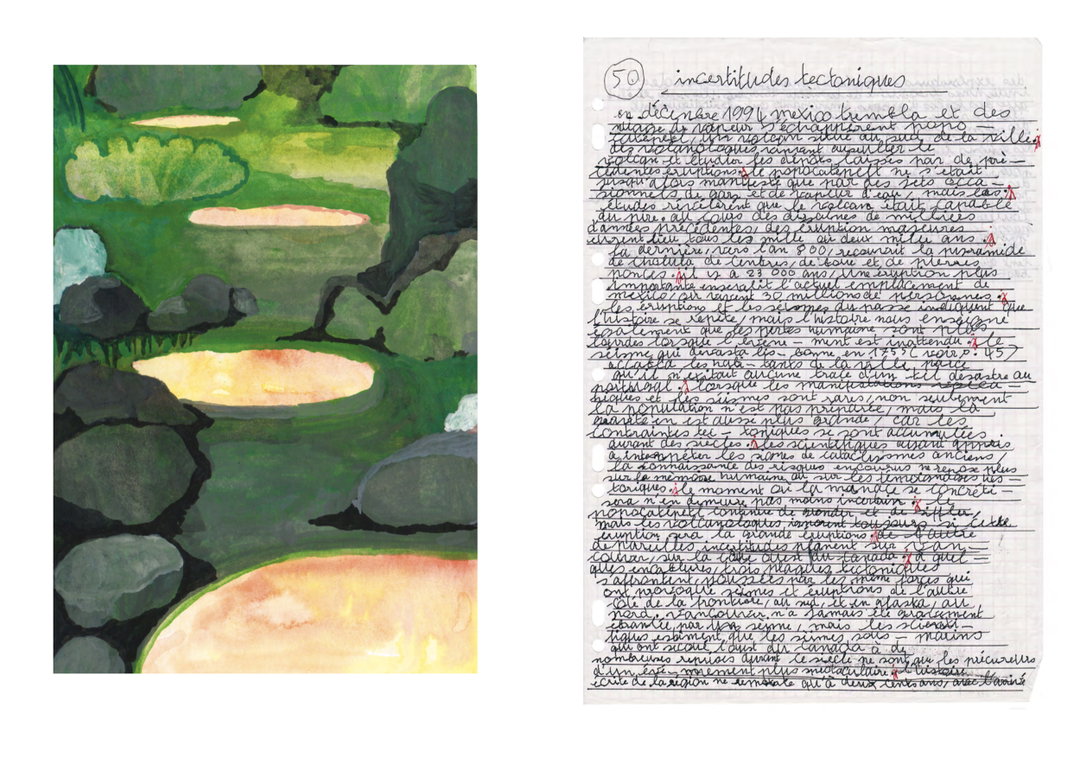 50 incertitudes tectoniques
en décembre 1994 mexico trembla et des
nuages de vapeur s'échappèrent popo —
catépetl, un volcan situé au sud de la ville.
les volcanologues vinrent ausculter le
volcan et étudier les dépôts laissés par de pré —
cédentes éruptions. le popocatépetl ne s'était
jusqu'alors manifesté que par des jets occa —
sionnels de gaz et de vapeur d'eau, mais ces
études révélèrent que le volcan était capable
du pire. au cours des dizaines de milliers
d'années précédentes, des éruption majeures
eurent lieu tous les mille ou deux mille ans.
la dernière, vers l'an 800, recouvrit la pyramide
de cholula de cendres, de boue et de pierres
ponces. il y a 23 000 ans, une éruption plus
importante ensevelit l'actuel emplacement de
mexico, où vivent 30 millions de personnes.
les éruptions et les séismes du passé indiquent que
l'histoire se répète, mais l'histoire nous enseigne
également que les pertes humaine sont plus
lourdes lorsque l'évène — ment est inattendu. le
séisme qui dévasta lis — bonne, en 1755 (voir p. 45)
accabla les habi — tants de la ville parce
qu'il n'existait aucune trace d'un tel désastre au
portugal. lorsque les manifestations
et les séismes sont rares, non seulement
la population n'est pas préparée, mais la
en est aussi plus grande, car les
contraintes tec — toniques se sont accumulées
durant des siècles. les scientifiques ayant appris
à interpréter les signes de cataclysmes anciens,
la connaissance des risques encourus ne repose plus
sur la mémoire humaine ou sur les témoignages his —
toriques. le moment où la menace se concréti —
sera n'en demeure pas moins incertain. le
popocatépetl continue de gronder et de siffler,
mais les volcanologues ignorent toujours si cette
éruption sera la grande éruptions. de l'autre
de pareilles incertitudes planent sur van —
couver, sur la côte ouest du canada. à quel —
ques encablures, trois plaques tectoniques
s'affrontent, poussées par les même forces qui
ont provoqué séismes et éruptions de l'autre
côté de la frontière, au sud, et en alaska, au
nord. vancouver n'a jamais été gravement
ébranlée par un séisme, mais les scienti —
fiques estiment que les séismes sous — marins
qui ont secoué l'ouest du canada à de
nombreuses reprises durant ce siècle ne sont que les précurseurs
d'un évé — nement plus spectaculaire. l'histoire
écrite de la région ne remonte qu'à deux cents ans, avec l'arrivée